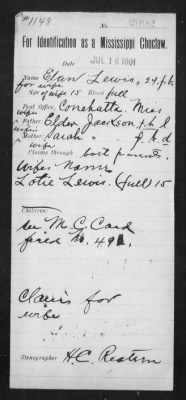 #1148
For Identification as a Mississippi Choctaw.
JUL 16 1901
Date
Name Elan Lewis, 24. f.b.
for wife
Age of wife 15 Blood full
Post Office, Conehatta, Miss
wife's
Father, Elder Jackson f.b.d
wife's
Mother Sarah " f.b.d
wife
Claims through both parents.
Wife's Name
Lotie Lewis. (full) 15
Children:
see M.C. Card
field No. 491.
Claims for
wife
Stenographer H.C.